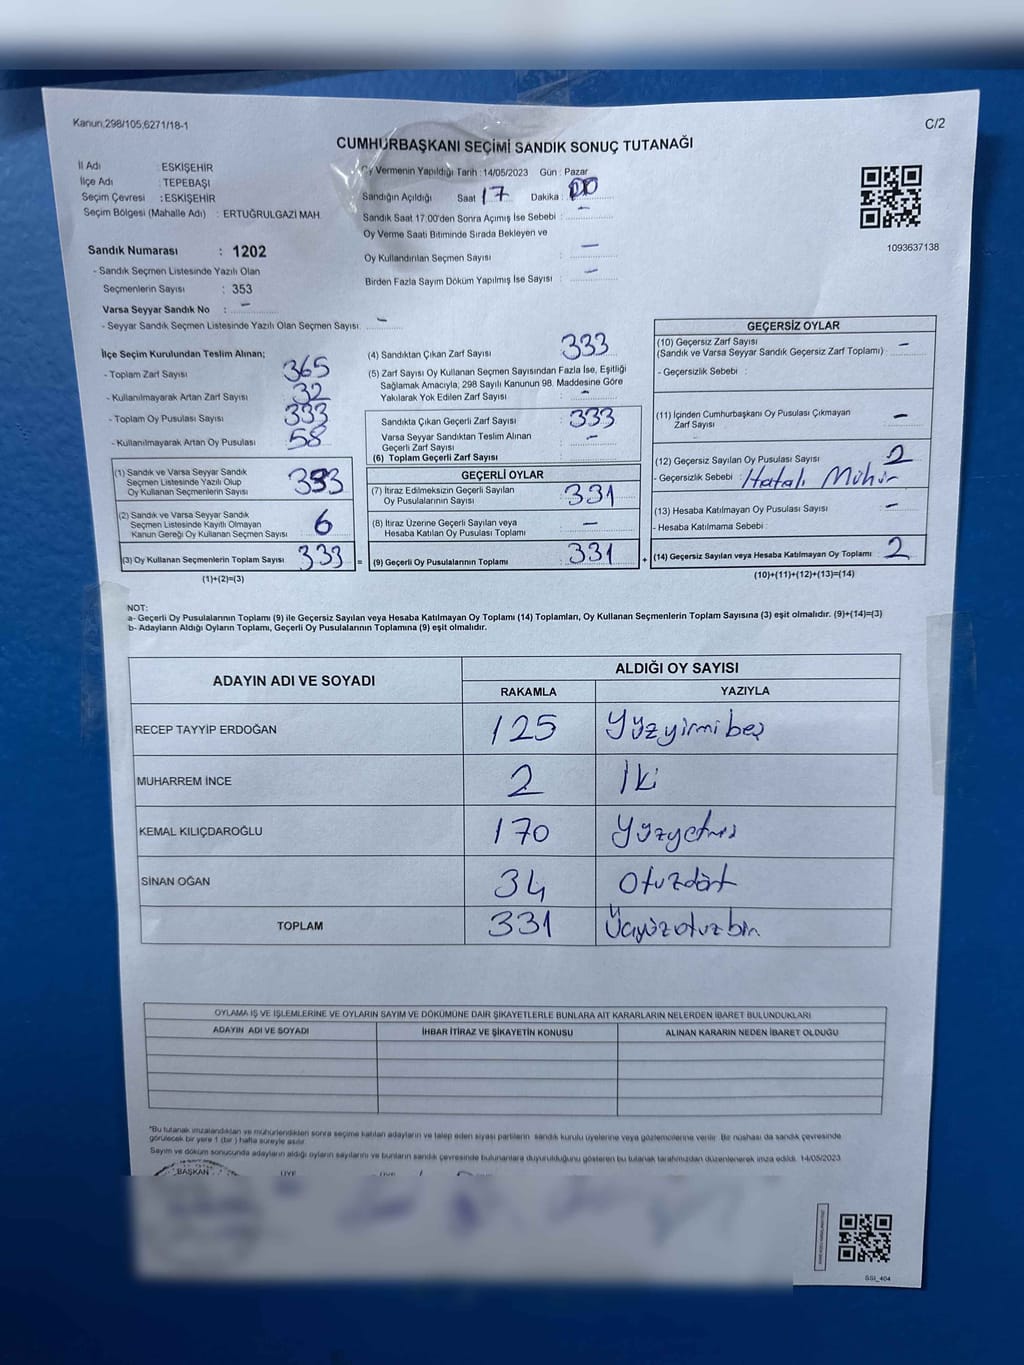 Kanun,298/105,6271/18-1
C/2
CUMHURBAŞKANI SEÇİMİ SANDIK SONUÇ TUTANAĞI
İl Adı : ESKİŞEHİR
İlçe Adı : TEPEBAŞI
Seçim Çevresi : ESKİŞEHİR
Seçim Bölgesi (Mahalle Adı) : ERTUĞRULGAZİ MAH.
Sandık Numarası : 1202
- Sandık Seçmen Listesinde Yazılı Olan
Seçmenlerin Sayısı : 353
Varsa Seyyar Sandık No : -
- Seyyar Sandık Seçmen Listesinde Yazılı Olan Seçmen Sayısı. -
Oy Vermenin Yapıldığı Tarih : 14/05/2023 Gün : Pazar
Sandığın Açıldığı Saat 17 Dakika : 00
Sandık Saat 17.00'den Sonra Açımış İse Sebebi : -
Oy Verme Saati Bitiminde Sırada Bekleyen ve
Oy Kullandırılan Seçmen Sayısı : -
Birden Fazla Sayım Döküm Yapılmış İse Sayısı : -
1093637138
İlçe Seçim Kurulundan Teslim Alınan;
- Toplam Zarf Sayısı 365
- Kullanılmayarak Artan Zarf Sayısı 32
- Toplam Oy Pusulası Sayısı 333
- Kullanılmayarak Artan Oy Pusulası 58
(1) Sandık ve Varsa Seyyar Sandık
Seçmen Listesinde Yazılı Olup
Oy Kullanan Seçmenlerin Sayısı
(2) Sandık ve Varsa Seyyar Sandık
Seçmen Listesinde Kayıtlı Olmayan
Kanun Gereği Oy Kullanan Seçmen Sayısı 6
(3) Oy Kullanan Seçmenlerin Toplam Sayısı 333 =
(1)+(2)=(3)
(4) Sandıktan Çıkan Zarf Sayısı 333
(5) Zarf Sayısı Oy Kullanan Seçmen Sayısından Fazla İse, Eşitliği
Sağlamak Amacıyla; 298 Sayılı Kanunun 98. Maddesine Göre
Yakılarak Yok Edilen Zarf Sayısı -
Sandıkta Çıkan Geçerli Zarf Sayısı 333
Varsa Seyyar Sandıktan Teslim Alınan
Geçerli Zarf Sayısı -
(6) Toplam Geçerli Zarf Sayısı
GEÇERLİ OYLAR
(7) İtiraz Edilmeksizin Geçerli Sayılan
Oy Pusulalarının Sayısı 331
(8) İtiraz Üzerine Geçerli Sayılan veya
Hesaba Katılan Oy Pusulası Toplamı -
(9) Geçerli Oy Pusulalarının Toplamı 331 +
GEÇERSİZ OYLAR
(10) Geçersiz Zarf Sayısı
(Sandık ve Varsa Seyyar Sandık Geçersiz Zarf Toplamı) : -
- Geçersizlik Sebebi :
(11) İçinden Cumhurbaşkanı Oy Pusulası Çıkmayan
Zarf Sayısı -
(12) Geçersiz Sayılan Oy Pusulası Sayısı 2
- Geçersizlik Sebebi : Hatalı Mühür
(13) Hesaba Katılmayan Oy Pusulası Sayısı : -
- Hesaba Katılmama Sebebi :
(14) Geçersiz Sayılan veya Hesaba Katılmayan Oy Toplamı : 2
(10)+(11)+(12)+(13)=(14)
NOT:
a- Geçerli Oy Pusulalarının Toplamı (9) ile Geçersiz Sayılan veya Hesaba Katılmayan Oy Toplamı (14) Toplamları, Oy Kullanan Seçmenlerin Toplam Sayısına (3) eşit olmalıdır. (9)+(14)=(3)
b- Adayların Aldığı Oyların Toplamı, Geçerli Oy Pusulalarının Toplamına (9) eşit olmalıdır.
ADAYIN ADI VE SOYADI
ALDIĞI OY SAYISI
RAKAMLA YAZIYLA
RECEP TAYYİP ERDOĞAN 125 Yüzyirmibeş
MUHARREM İNCE 2 İki
KEMAL KILIÇDAROĞLU 170 Yüzyetmiş
SİNAN OĞAN 34 Otuzdört
TOPLAM 331 Üçyüzotuzbir
OYLAMA İŞ VE İŞLEMLERİNE VE OYLARIN SAYIM VE DÖKÜMÜNE DAİR ŞİKAYETLERLE BUNLARA AİT KARARLARIN NELERDEN İBARET BULUNDUKLARI
ADAYIN ADI VE SOYADI İHBAR İTİRAZ VE ŞİKAYETİN KONUSU ALINAN KARARIN NEDEN İBARET OLDUĞU
*Bu tutanak imzalandıktan ve mühürlendikten sonra seçime katılan adayların ve talep eden siyasi partilerin sandık kurulu üyelerine veya gözlemcilerine verilir. Bir nüshası da sandık çevresinde
görülecek bir yere 1 (bir ) hafta süreyle asılır.
Sayım ve döküm sonucunda adayların aldığı oyların sayılarını ve bunların sandık çevresinde bulunanlara duyurulduğunu gösteren bu tutanak tarafımızdan düzenlenerek imza edildi. 14/05/2023
BAŞKAN ÜYE ÜYE
SSI_404